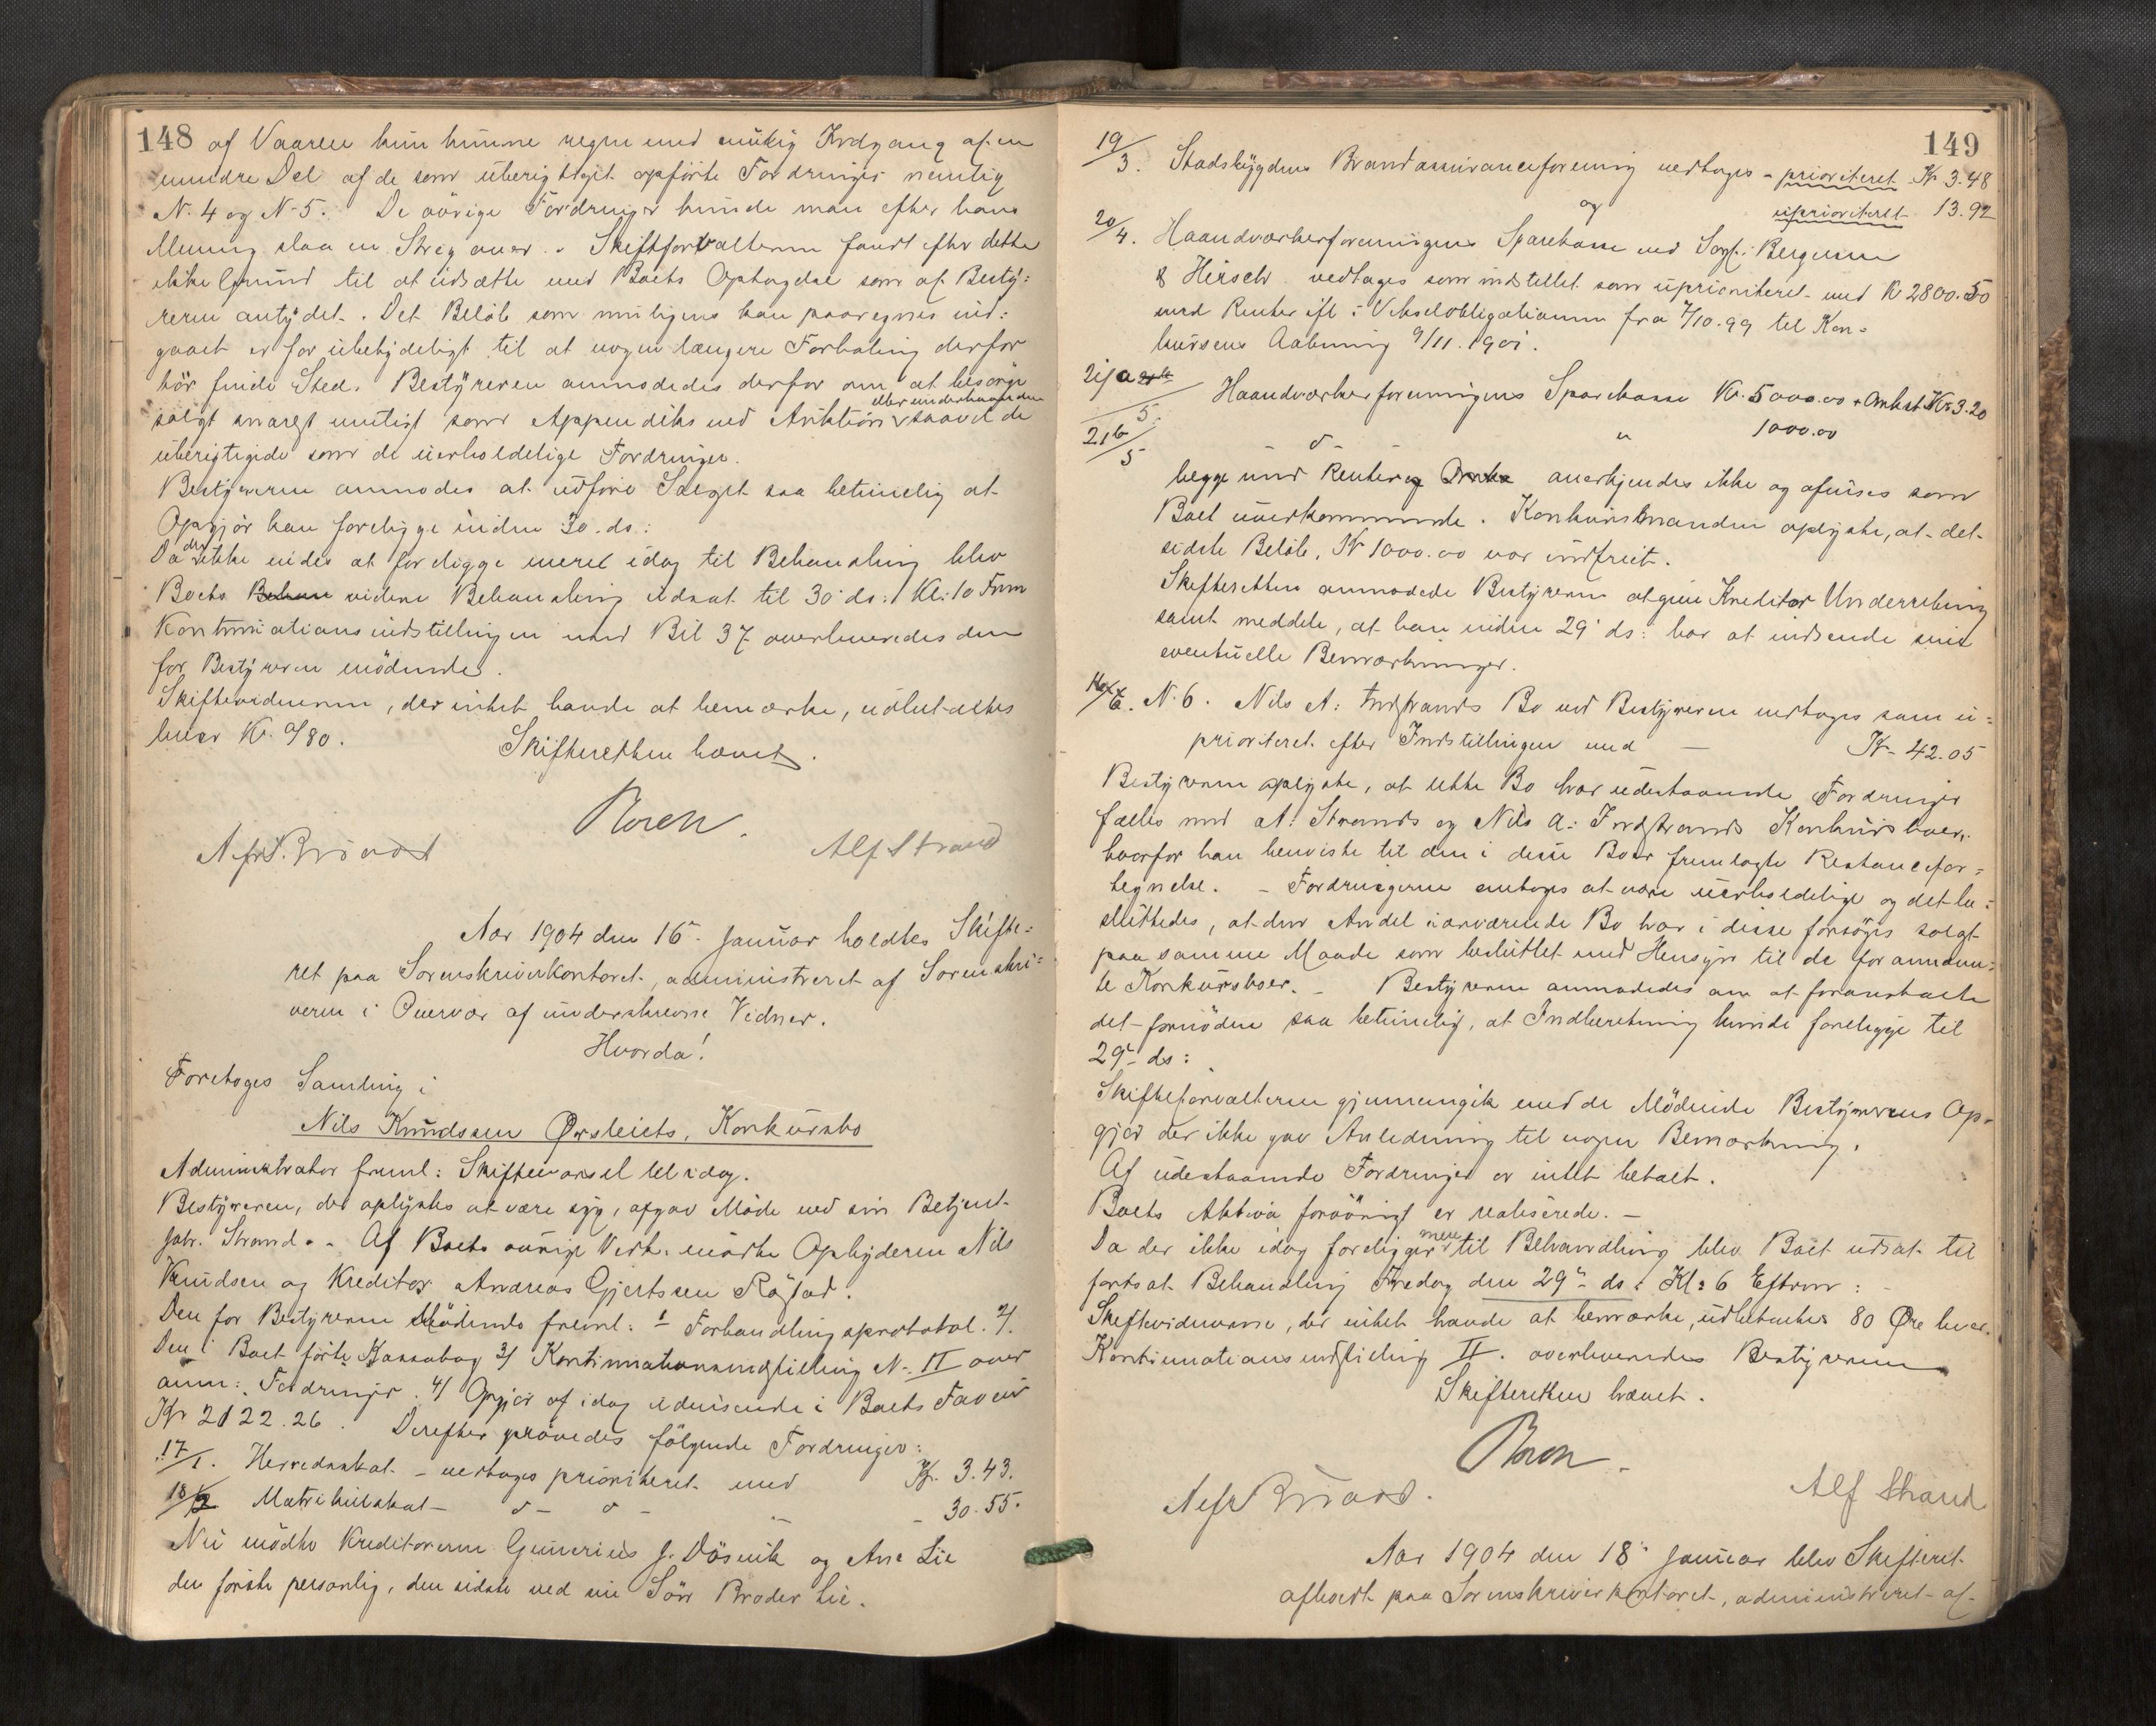 148 af Vaaren kun kunne regne med mulig Indgang af en
mindre Del af de som uberigtiget opförte Fordringer nemlig
N. 4 og N. 5. De övrige Fordringer kunde man efter hans
Mening slaa en Streg over. Skifteforvalteren fandt efter dette
ikke Grund til at udsætte med Boets Optagelse som af Besty:
reren antydet. Det Belöb som muligens kan paaregnes ind:
gaaet er for ubetydeligt til at nogen længere Forhaling derfor
bör finde Sted. Bestyreren anmodedes derfor om at besörge
eller underhaanden
solgt snarest muligt som Appendiks ved Auktion saavel de
uberigtigede som de uerholdelige Fordringer.
Bestyreren anmodes at udföre Salget saa betimelig at
Opgjör kan foreligge inden 30. ds:
Da der ikke vides at foreligge mere idag til Behandling blev
Boets videre Behandling udsat til 30' ds: Kl: 10 Fmm
Kontinuationsindstillingen med Bil 37 overleveredes den
for Bestyreren mödende.
Skiftevidnerne, der intet havde at bemærke, udbetaltes
hver Kr. 0/80. Skifteretten hævet.
Roren.
Alf Strand
Aar 1904 den 16de Januar holdtes Skifte:
ret paa Sorenskriverkontoret, administreret af Sorenskri:
veren i Overvær af underskrevne Vidner.
Hvorda!
Foretoges Samling i
Nils Knudssen Ørsleiets, Konkursbo
Administrator freml: Skiftevarsel til idag.
Bestyreren, der oplystes at være syg, afgav Möde ved sin Betjent
Joh. Strand. - Af Boets övrige Vedk. mödte Opbyderen Nils
Knudsen og Kreditor Andreas Gjertssen Röstad.
Den for Bestyreren Mödende freml: 1 Forhandlingsprotokol. 2/.
Den i Boet förte Kassabog 3/ Kontinuationsindstilling N. II over
anm: Fordringer. 4/ Opgjör af idag udvisende i Boets Favör
Kr 2122.26. Derefter prövedes fölgende Fordringer:
17/1. Herredsskat - vedtoges prioriteret med Kr. 3.43.
18/2 Matrikulskat - d - d - " - 30.55.
Nu mödte Kreditorerne Gunerius J. Dösvik og Ane Lie
den förste personlig, den sidste ved sin Sön Broder Lie.
149
19/3. Stadsbygdens Brandassuranceforening vedtoges - prioriteret Kr 3.48
og uprioriteret 13.92
20/4. Haandværkerforeningens Sparekasse ved Sagf: Bergersen
& Hirsch vedtages som indstillet som uprioriteret med Kr 2800.50
med Renter ifl: Vekselobligationen fra 7/10.99 til Kon-
kursens Aabning 9/11.1901.
21/a 5. Haandværkerforeningens Sparekasse Kr. 5000.00 + Omkst. Kr 3.20
21b/5 - d - " 1000.00
begge med Renter og anerkjendes ikke og afvises som
Boet uvedkommende. Konkursmanden oplyste, at det
sidste Belöb, Kr 1000.00 var indfriet.
Skifteretten anmodede Bestyreren at give Kreditor Underretning
samt meddele, at han inden 29' ds: har at indsende sine
eventuelle Bemærkninger.
N. 6. Nils A: Indstrands Bo ved Bestyreren vedtoges som u:
prioriteret efter Indstillingen med — Kr. 42.05
Bestyreren oplyste, at dette Bo har udestaaende Fordringer
fælles med A: Strands og Nils A: Indstrands Konkursboer,
hvorfor han henviste til den i disse Boer fremlagte Restancefor:
tegnelse. - Fordringerne antoges at være uerholdelige og det be:
sluttedes, at den Andel nærværende Bo har i disse forsöges solgt
paa samme Maade som besluttet med Hensyn til de forannævn:
te Konkursboer. - Bestyreren anmodedes om at foranstalte
det fornödne saa betimelig, at Indberetning kunde foreligge til
29de ds:
Skifteforvalteren gjennemgik med de Mödende Bestyrerens Op-
gjör der ikke gav Anledning til nogen Bemærkning.
Af udestaaende Fordringer er intet betalt.
Boets Aktiva forövrigt er realiserede. -
Da der ikke idag foreligger mere til Behandling blev Boet udsat til
fortsat Behandling Fredag den 29de ds: Kl: 6 Efterm:
Skiftevidnerne, der intet havde at bemærke, udbetaltes 80 Øre hver.
Kontinuationsindstilling II. overleveredes Bestyreren
Skifteretten hævet.
Roren
Alf Strand
Aar 1904 den 18de Januar blev Skifteret
afholdt paa Sorenskriverkontoret, administreret af